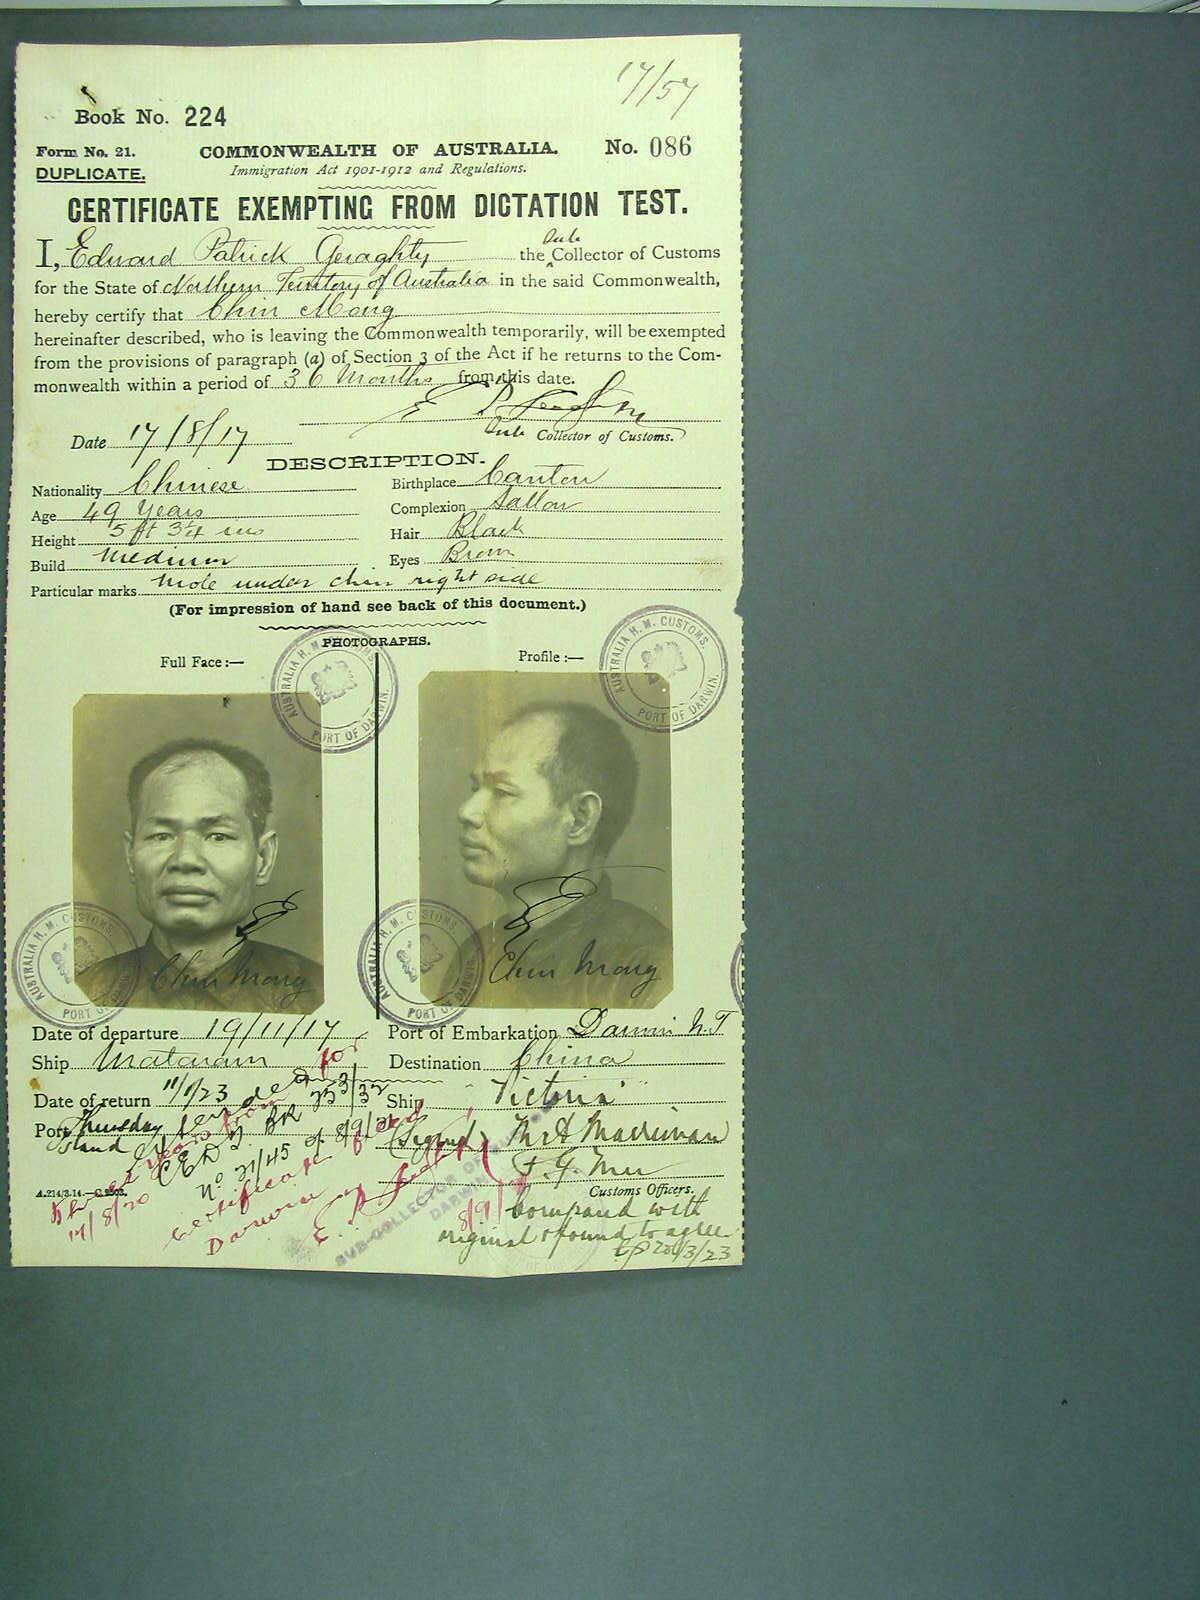 17/57
Book No. 224
Form No. 21. COMMONWEALTH OF AUSTRALIA. No. 086
DUPLICATE. Immigration Act 1901-1912 and Regulations.
CERTIFICATE EXEMPTING FROM DICTATION TEST.
I, Edward Patrick Geraghty the Sub Collector of Customs
for the State of Northern Territory of Australia in the said Commonwealth,
hereby certify that Chin Mong
hereinafter described, who is leaving the Commonwealth temporarily, will be exempted
from the provisions of paragraph (a) of Section 3 of the Act if he returns to the Com-
monwealth within a period of 36 Months from this date.
Date 17/8/17 Sub Collector of Customs.
DESCRIPTION.
Nationality Chinese Birthplace Canton
Age 49 Years Complexion Sallow
Height 5 ft 3¼ ins Hair Black
Build Medium Eyes Brown
Particular marks Mole under chin right side
(For impression of hand see back of this document.)
PHOTOGRAPHS.
Full Face:— Profile:—
AUSTRALIA H. M. CUSTOMS. PORT OF DARWIN.
AUSTRALIA H. M. CUSTOMS. PORT OF DARWIN.
AUSTRALIA H. M. CUSTOMS. PORT OF DARWIN.
AUSTRALIA H. M. CUSTOMS. PORT OF DARWIN.
Chin Mong Chin Mong
Date of departure 19/11/17 Port of Embarkation Darwin N.T
Ship Mataram Destination China
Date of return 11/1/23 Ship Victoria
Port Thursday Island (Signed)
Customs Officers.
A.214/3.14.—C.2503.
Extended for
three years from
17/8/20
CEDT BK 253/32
No 31/45 of 8/9/
Certificate
Darwin
SUB-COLLECTOR OF
DARWIN
8/9/
Compared with
original & found to agree
20/3/23